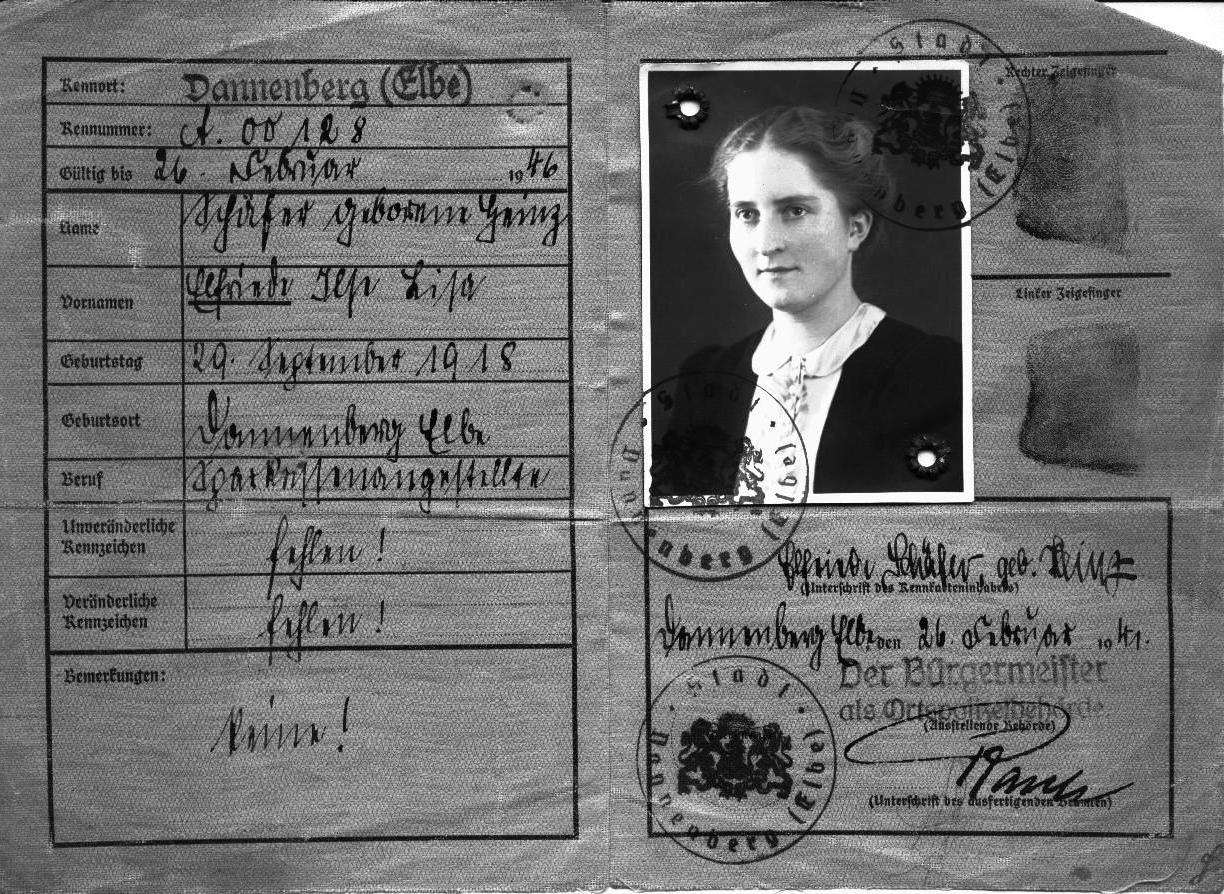 Kennort: Dannenberg (Elbe)
Kennummer: A. 00128
Gültig bis 26. Februar 1946
Name Schäfer geborene Heinz
Vornamen Elfriede Ilse Lisa
Geburtstag 29. September 1918
Geburtsort Dannenberg Elbe
Beruf Sparkassenangestellte
Unveränderliche
Kennzeichen fehlen!
Veränderliche
Kennzeichen fehlen!
Bemerkungen:
keine!
Stadt Dannenberg (Elbe)
Rechter Zeigefinger
Linker Zeigefinger
Stadt Dannenberg (Elbe)
Elfriede Schäfer, geb. Heinz
(Unterschrift des Kennkarteninhabers)
Dannenberg Elbe, den 26. Februar 1941.
Der Bürgermeister
als Ortspolizeibehörde
(Ausstellende Behörde)
(Unterschrift des ausfertigenden Beamten)
Stadt Dannenberg (Elbe)